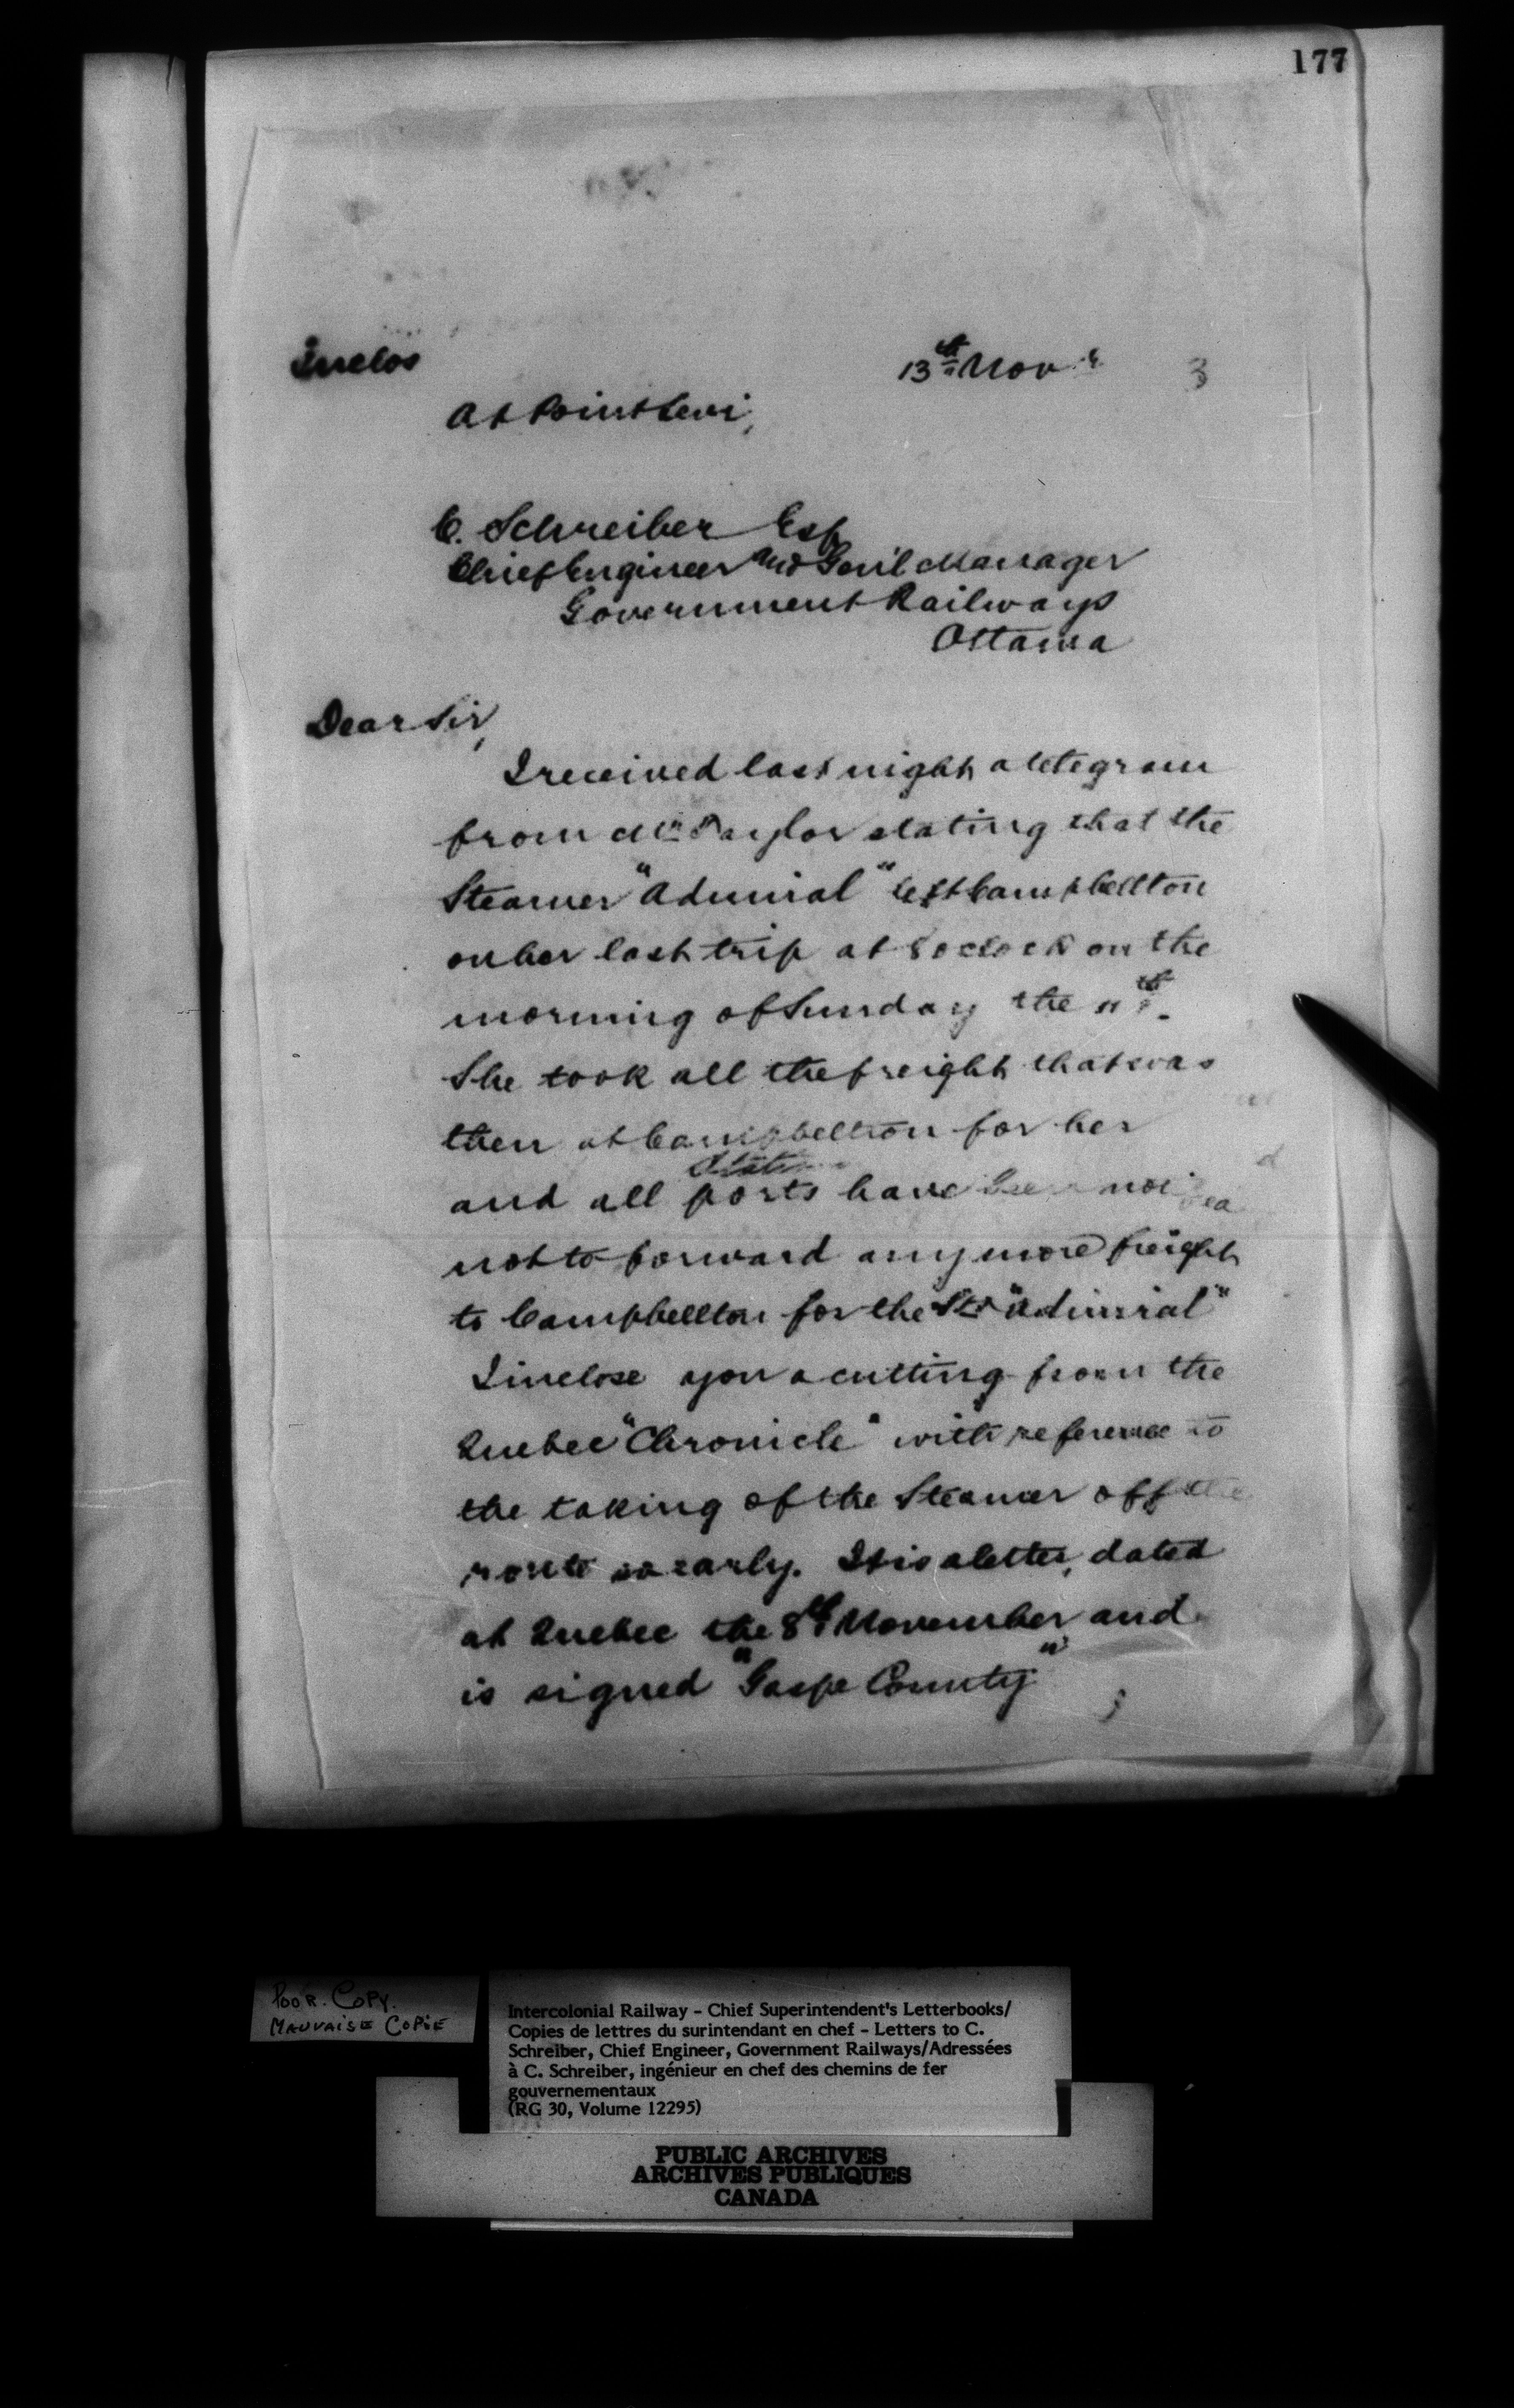 177
Inclos
13th Novr 3
At Point Levi,
C. Schreiber Esq
Chief Engineer and Genl Manager
Government Railways
Ottawa
Dear Sir,
I received last night a telegram
from Mr Taylor stating that the
Steamer "Admiral" left Campbellton
on her last trip at 8 oclock on the
morning of Sunday the 11th.
She took all the freight that was
then at Campbellton for her
and all ports have been
not to forward any more freight
to Campbellton for the Str "Admiral"
I inclose you a cutting from the
Quebec "Chronicle" with reference to
the taking of the Steamer off the
route so early. It is a letter, dated
at Quebec the 8th November and
is signed "Gaspe County"
POOR. COPY.
MAUVAISE COPIE
Intercolonial Railway - Chief Superintendent's Letterbooks/
Copies de lettres du surintendant en chef - Letters to C.
Schreiber, Chief Engineer, Government Railways/Adressées
à C. Schreiber, ingénieur en chef des chemins de fer
gouvernementaux
(RG 30, Volume 12295)
PUBLIC ARCHIVES
ARCHIVES PUBLIQUES
CANADA